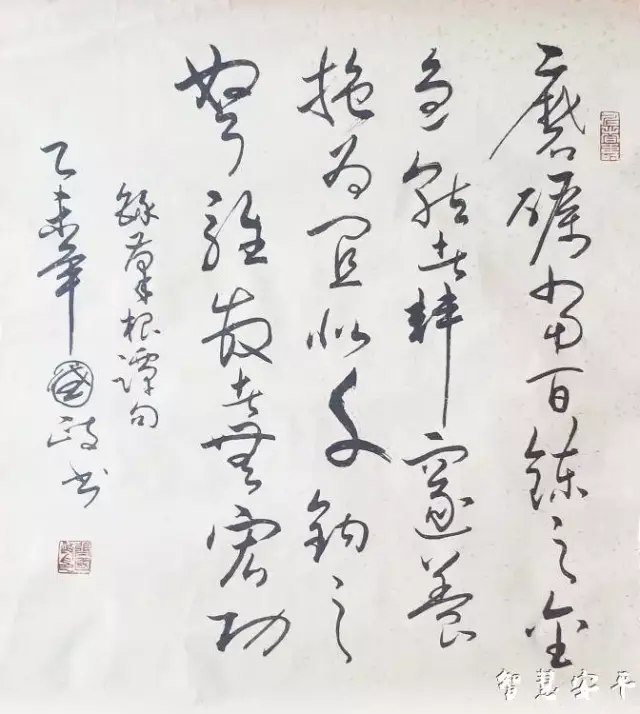 磨礪當百鍊之金
急就者非邃養
施為宜似千鈞之
弩輕發者無宏功
錄菜根譚句
乙未年國政書
智慧安平